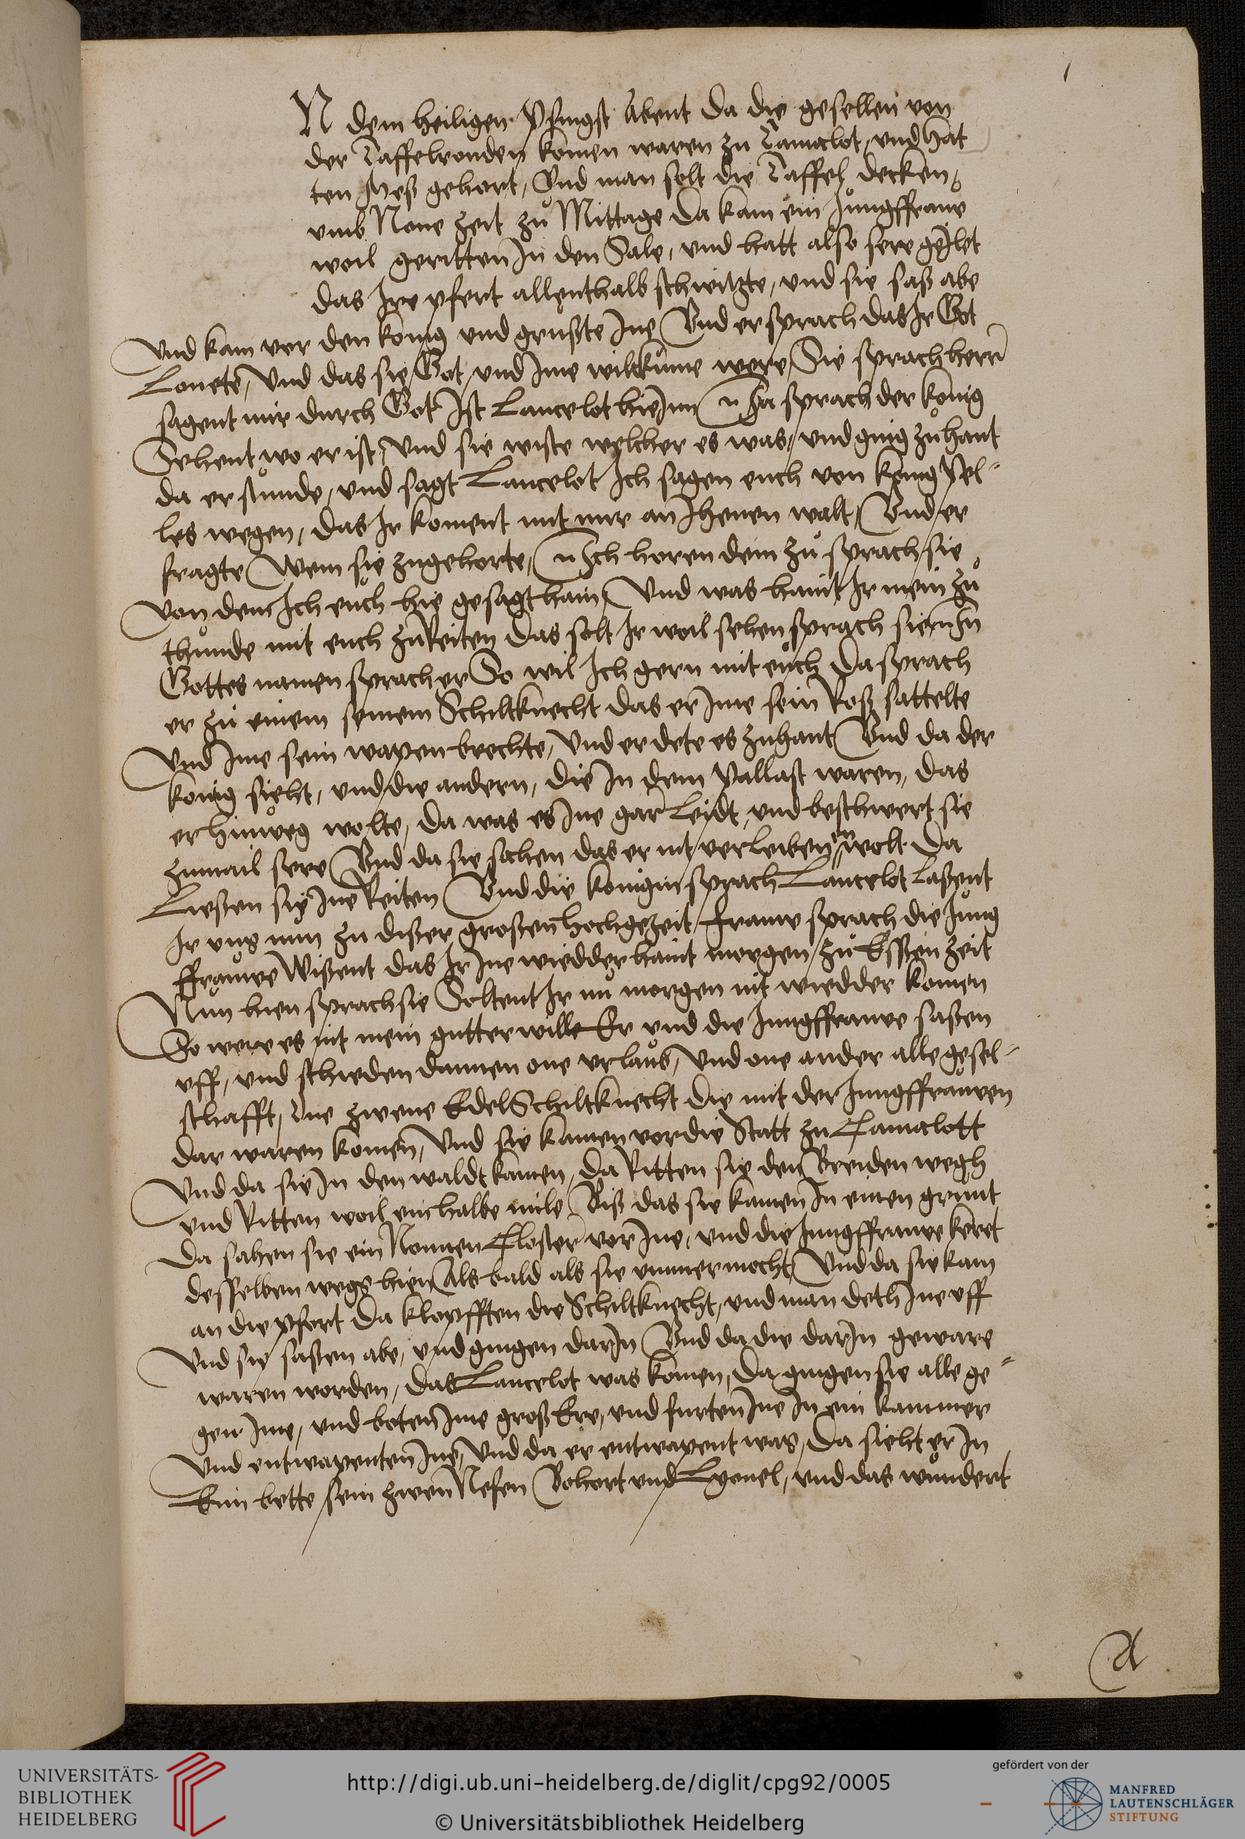 1
N dem heiligen Pfingst Abent Da die gesellen von
der Taffelronden komen waren zu Camalot, vnd hat
ten Meß gehort, Vnd man solt die Taffel decken,
vmb None zeit zu Mittage Da kam ein Jungffrauwe
woil geritten In den Sale, vnd hatt also sere geilet
das Ire pfert allenthalb schwitzte, vnd sie saß abe
Vnd kam vor den konig vnd grußte Ine Vnd er sprach das Ir Got
Lonete, Vnd das sie Got vnd Ime willkume were, Sie sprach herr
sagent mir durch Got Ist Lancelot hie Inn Ja sprach der konig
Sehent wo er ist, Vnd sie wiste welcher es was, vnd ging zu hant
da er stunde, vnd sagt Lancelot Ich sagen euch von konig Pel-
les wegen, das Ir koment mit mir an Jhenen walt, Vnd er
fragte Wem sie zugehorte, Ich horen dem zu sprach sie
von dem Ich euch hie gesagt hain, Vnd was haint Ir mein zu
thunde mit euch zu Reiten Das solt Ir woil sehen sprach sie In
Gottes namen sprach er So wil Ich gern mit euch Da sprach
er zu einem seinem Schiltknecht das er Ime sein Roß sattelte
Vnd Ime sein wapen brechte, Vnd er dete es zuhant Vnd da der
konig sieht, vnd die andern, die In dem Pallast waren, das
er hinweg wolte, da was es Ine gar Leydt, vnd beschwert sie
zumail sere Vnd da sie sahen das er nit verleiben wolt Da
Ließen sie Ine Reiten Vnd die konigin sprach Lancelot Laßent
Ir vns nun zu dißer großen hochgezeit, frauwe sprach die Jung
ffrauwe Wißent das Ir Ine wiedder haint morgen zu Eßßen zeit
Nun hien sprach sie Soltent Ir nu morgen nit wiedder komen
So were es nit mein gutter wille Er vnd die Jungffrauwe saßen
vff, vnd schieden dannen one vrlaub, Vnd one ander alle gesel-
schafft, Dne zwene Edel Schiltknecht die mit der Jungffrauwen
dar waren komen, Vnd sie kamen vor die Statt zu Camalott
Vnd da sie In den waldt kamen, Da Ritten sie den Breiden wegh
vnd Ritten woil ein halbe mile, Biß das sie kamen In einen grunt
Da sahen sie ein Nonnen Closter vor Ine, vnd die Jungffrauwe keret
desselben wegs hien Als bald als sie ummer mocht, Vnd da sie kam
an die pfort Da klopfften die Schiltknecht, vnd man deth Ine vff
Vnd sie saßen abe, vnd gingen darIn Vnd da die darIn geware
waren worden, das Lancelot was komen, Da gingen sie alle ge-
gen Ime, vnd boten Ime groß Ere, vnd furten Ine In ein kammer
Vnd entwapenten Ine, Vnd da er entwapent was, Da sieht er In
Eim bette sein zwen Nefen Bohort vnd Lyonel, vnd das wundert
A
UNIVERSITÄTS-
BIBLIOTHEK
HEIDELBERG
http://digi.ub.uni-heidelberg.de/diglit/cpg92/0005
© Universitätsbibliothek Heidelberg
gefördert von der
MANFRED
LAUTENSCHLÄGER
STIFTUNG